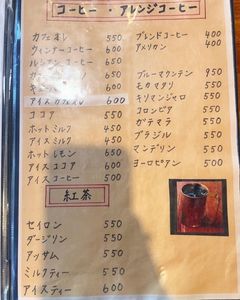 コーヒー ・ アレンジコーヒー
カフェオレ 550
ウィンナーコーヒー 600
ルシアンコーヒー 650
アイスカフェオレ 600
ココア 550
ホットミルク 450
アイスミルク 450
ホットレモン 650
アイスココア 600
アイスコーヒー 500
ブレンドコーヒー 400
アメリカン 400
ブルーマウンテン 950
モカマタリ 550
キリマンジャロ 550
コロンビア 550
ガテマラ 550
ブラジル 550
マンデリン 550
ヨーロピアン 500
紅茶
セイロン 550
ダージリン 550
アッサム 550
ミルクティー 550
アイスティー 600